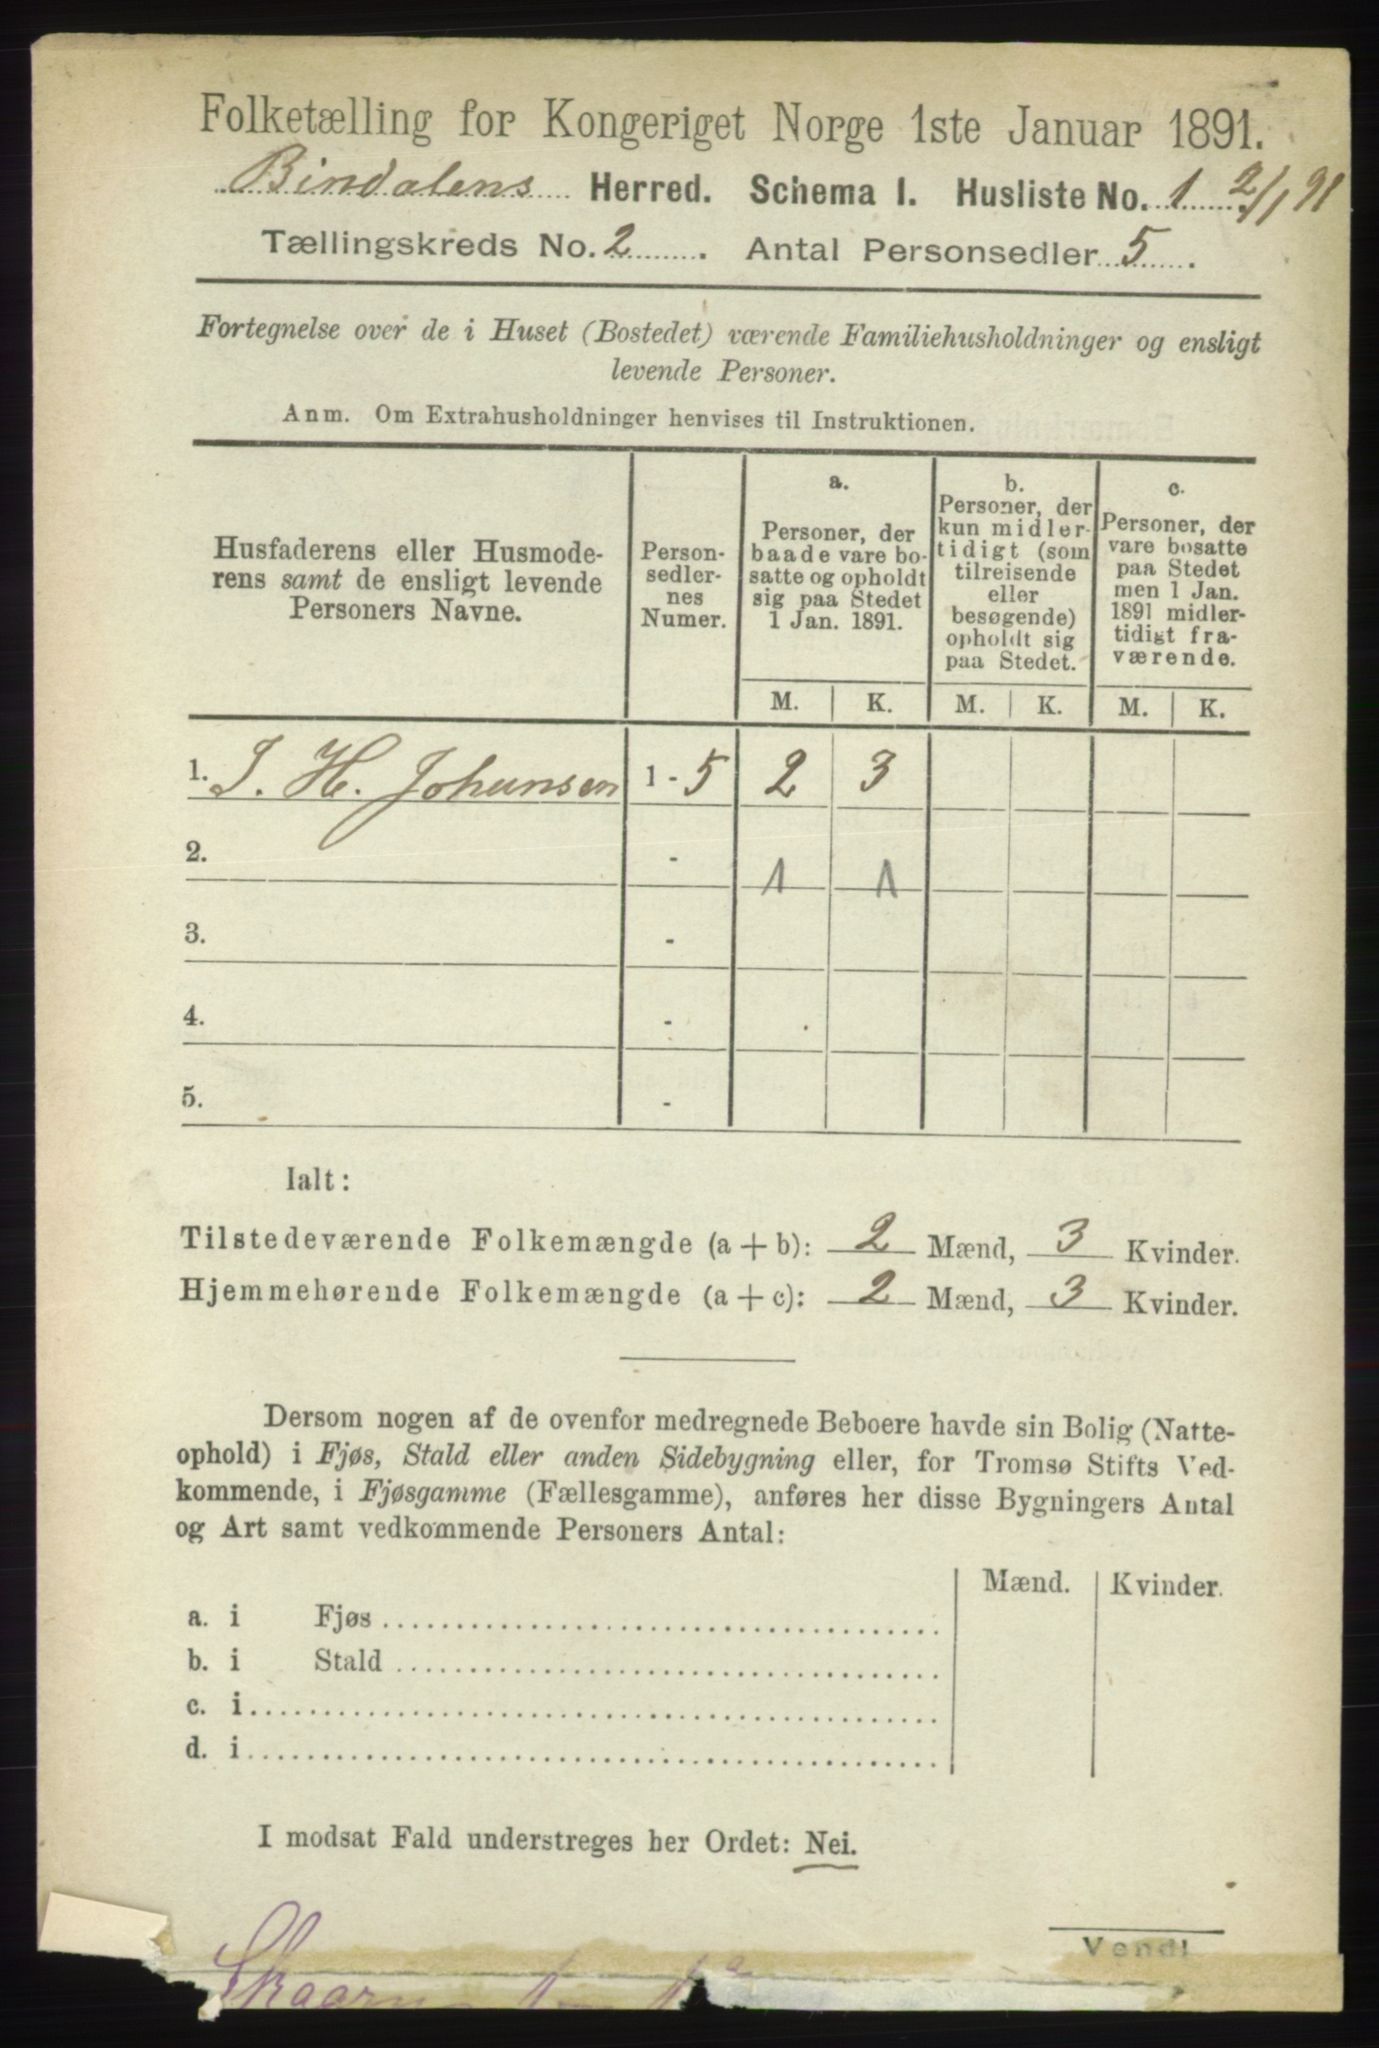 Folketælling for Kongeriget Norge 1ste Januar 1891.
Bindalens Herred. Schema I. Husliste No. 1 2/1 91
Tællingskreds No. 2. Antal Personsedler 5.
Fortegnelse over de i Huset (Bostedet) værende Familiehusholdninger og ensligt
levende Personer.
Anm. Om Extrahusholdninger henvises til Instruktionen.
Husfaderens eller Husmode-
rens samt de ensligt levende
Personers Navne.
Person-
sedler-
nes
Numer.
a.
Personer, der
baade vare bo-
satte og opholdt
sig paa Stedet
1 Jan. 1891.
b.
Personer, der
kun midler-
tidigt (som
tilreisende
eller
besøgende)
opholdt sig
paa Stedet.
c.
Personer, der
vare bosatte
paa Stedet
men 1 Jan.
1891 midler-
tidigt fra-
værende.
M. K. M. K. M. K.
1. J. H. Johansen 1 - 5 2 3
2. - 1 1
3. -
4. -
5. -
Ialt:
Tilstedeværende Folkemængde (a + b): 2 Mænd, 3 Kvinder.
Hjemmehørende Folkemængde (a + c): 2 Mænd, 3 Kvinder.
Dersom nogen af de ovenfor medregnede Beboere havde sin Bolig (Natte-
ophold) i Fjøs, Stald eller anden Sidebygning eller, for Tromsø Stifts Ved-
kommende, i Fjøsgamme (Fællesgamme), anføres her disse Bygningers Antal
og Art samt vedkommende Personers Antal:
Mænd. Kvinder.
a. i Fjøs
b. i Stald
c. i
d. i
I modsat Fald understreges her Ordet: Nei.
Vend!